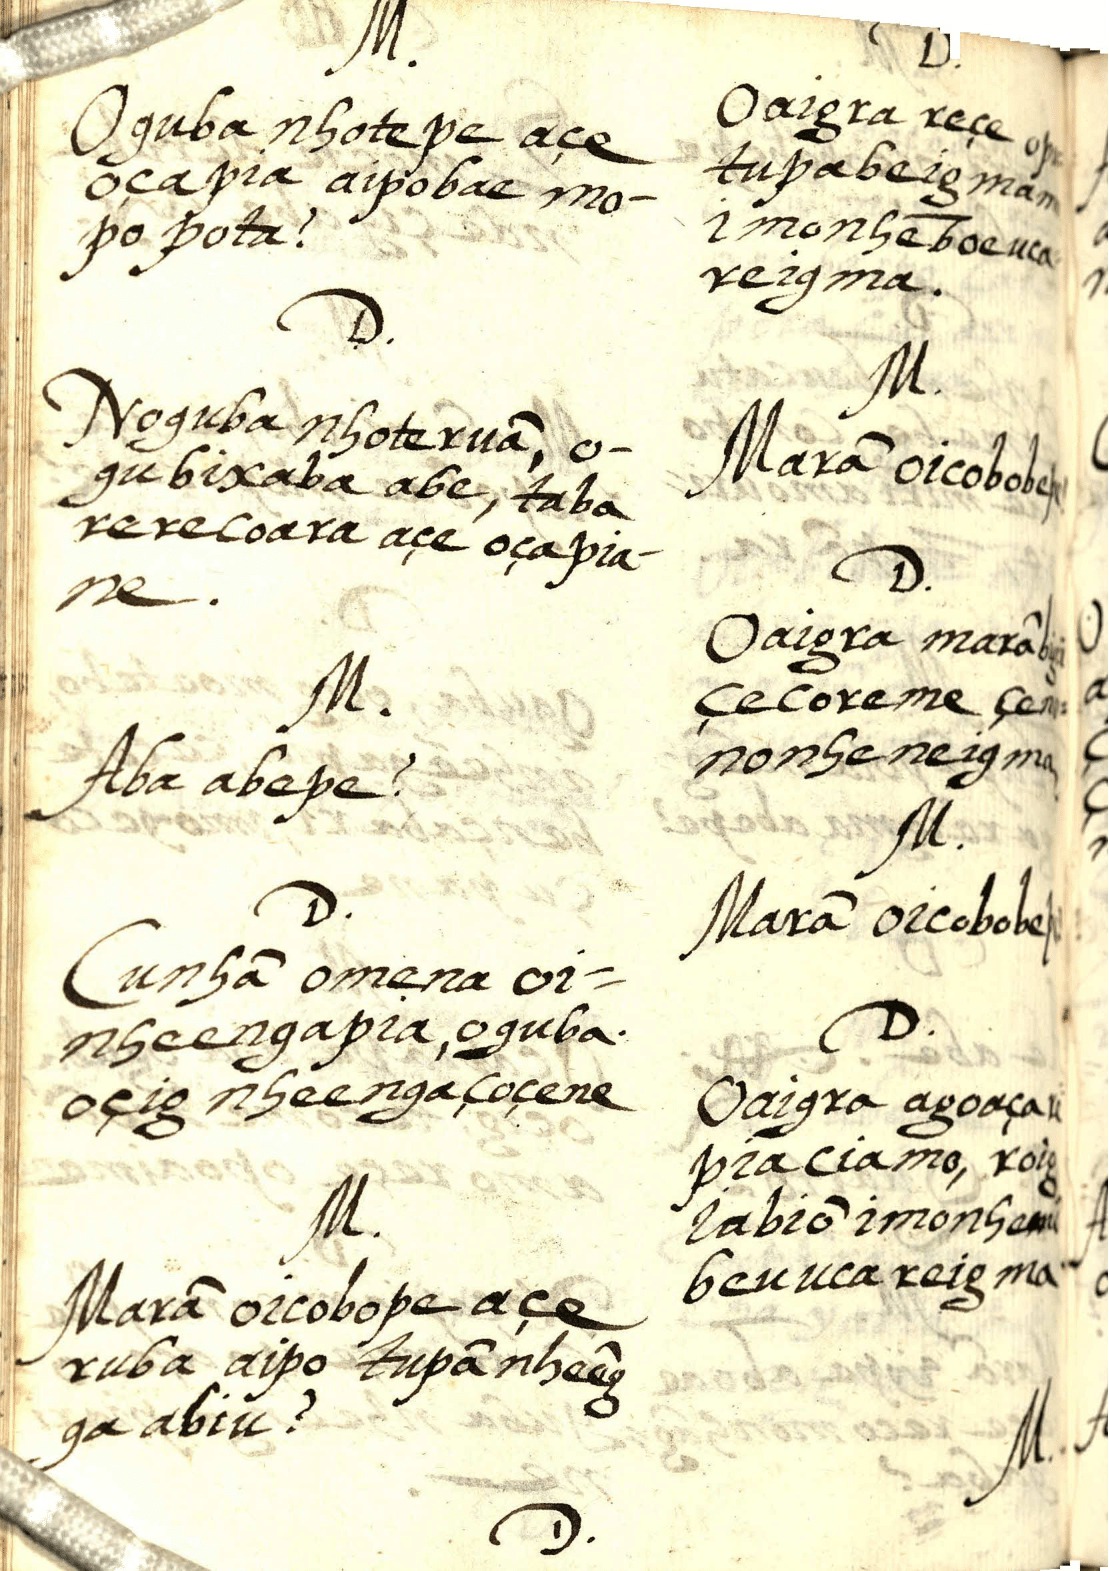 M.
Oguba nhotepe açe
oçapia aipobae mo-
po pota?
D.
Noguba nhoteruã, o-
gubixaba abe, taba
rerecoara açe oçapia-
ne.
M.
Aba abepe?
D.
Cunhã omena oi-
nheengapia, oguba.
oçig nheengaçoçene
M.
Marã oicobope açe
ruba aipo tupã nheẽg
ga abiu?
D.
D.
Oaigra reçe
tupabeigmam
imonhẽboeuca
reigma.
M.
Marã oicobobe
D.
Oaigra marã
çecoreme
nonheneigma,
M.
Marã oicobobe
D.
Oaigra agoaça
piaciamo, roig
iabiõ imonhe
beuucareigma
M.